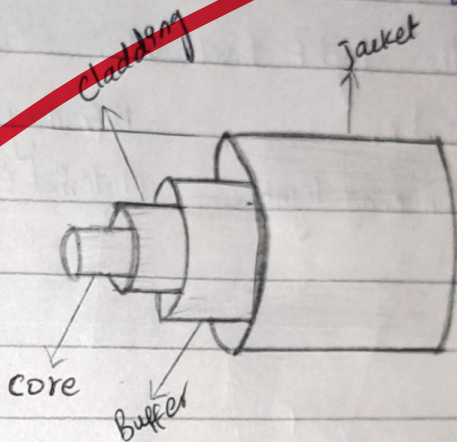 Cladding
Jacket
core
Buffer